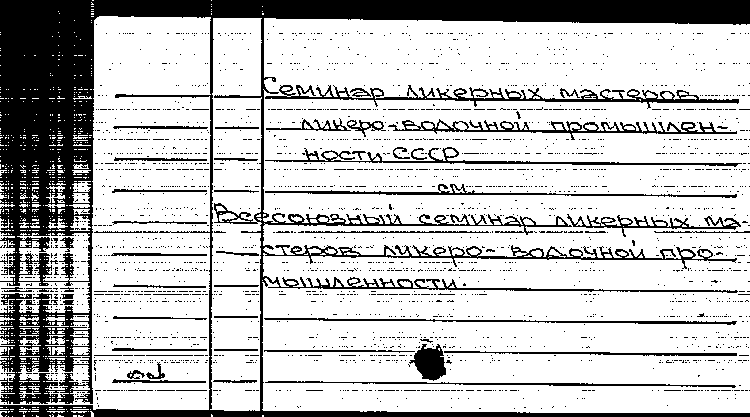 Семинар ликерных мастеров
ликеро-водочной промышлен-
ности СССР
см.
Всесоюзный семинар ликерных ма-
стеров ликеро-водочной про-
мышленности.